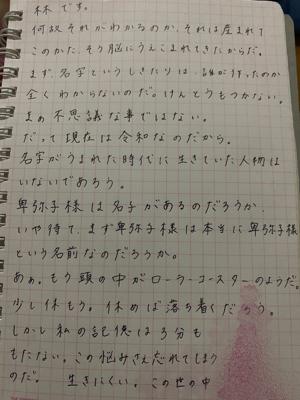 林です。
何故それがわかるのか、それは産まれて
このかた、そう脳にうえこまれてきたからだ。
まず、名字というしきたりは、誰が作ったのか
全くわからないのだ。けんとうもつかない。
まぁ不思議な事ではない。
だって現在は令和なのだから。
名字がうまれた時代に生きていた人物は
いないであろう。
卑弥子様は名字があるのだろうか、
いや待て、まず卑弥子様は本当に卑弥子様
という名前なのだろうか。
あぁ、もう頭の中がローラーコースターのようだ。
少し休もう。休めば落ち着くだろう。
しかし私の記憶は3分も
もたない。この悩みさえ忘れてしまう
のだ。 生きにくい、この世の中